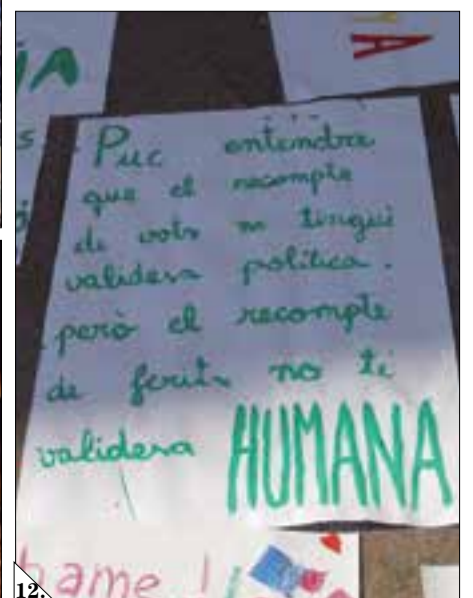 A
A
Puc entendre
que el recompte
de vots no tingui
validesa política.
però el recompte
de ferits no té
validesa HUMANA
hame !
12.